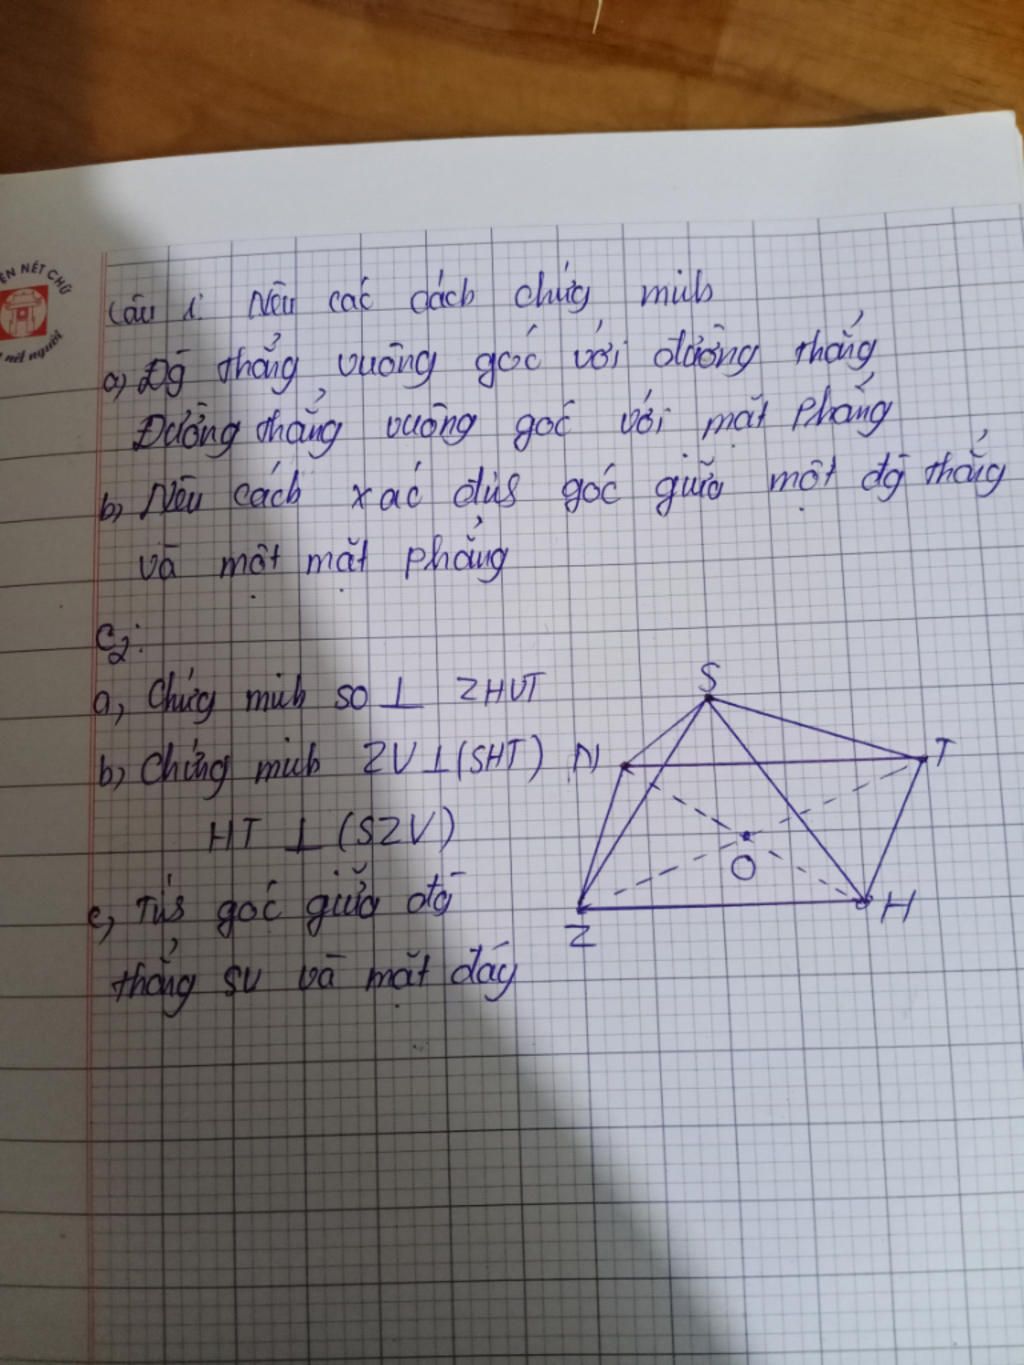 ÈN NÉT CHỮ
nét người
Câu 1: Nêu các cách chứng minh
a) Đg thẳng vuông góc với đường thẳng
Đường thẳng vuông góc với mặt phẳng
b, Nêu cách xác định góc giữa một đg thẳng
và một mặt phẳng
C2:
a, Chứng minh SO ⊥ ZHVT
b, Chứng minh ZV ⊥ (SHT)
HT ⊥ (SZV)
c, Tính góc giữa đg
thẳng SV và mặt đáy
S
N
T
O
Z
H